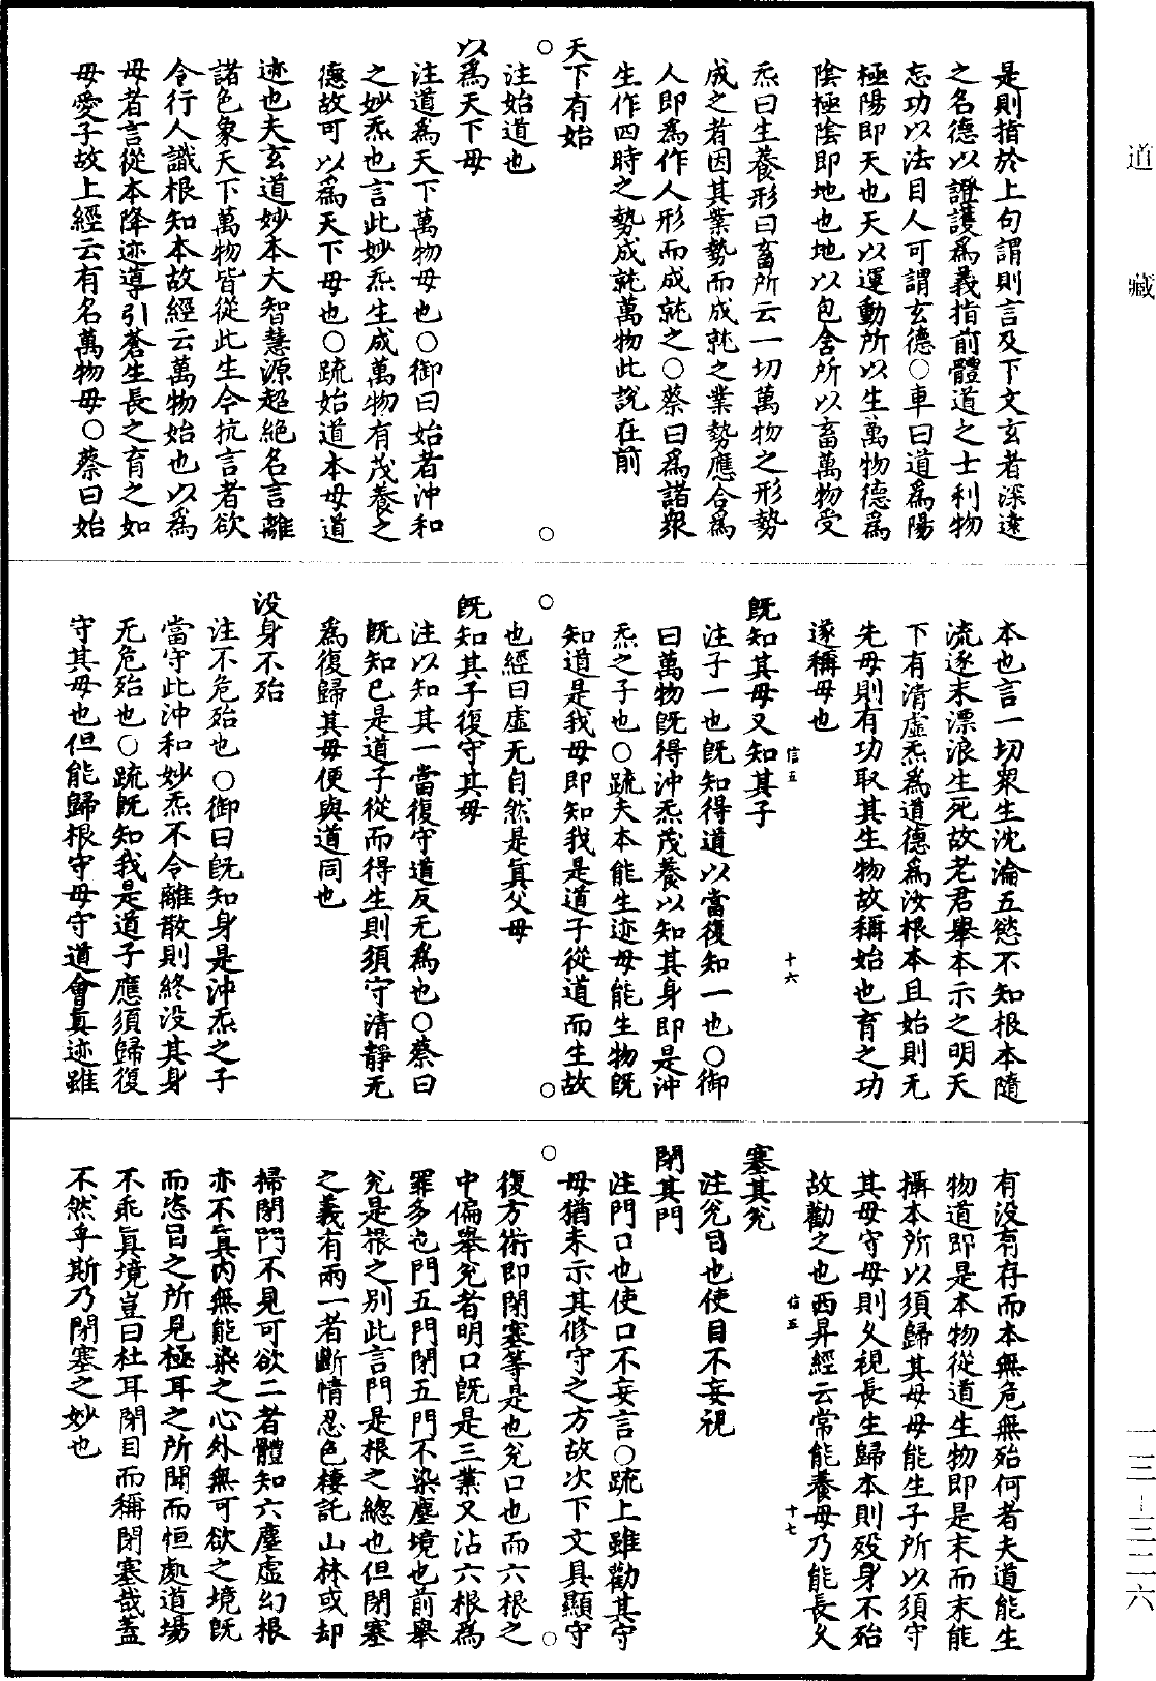 道藏
是則指於上句謂則言及下文玄者深遠
之名德以證護爲義指前體道之士利物
忘功以法目人可謂玄德○車曰道爲陽
極陽即天也天以運動所以生萬物德爲
陰極陰即地也地以包含所以畜萬物受
炁曰生養形曰畜所云一切萬物之形勢
成之者因其業勢而成就之業勢應合爲
人即爲作人形而成就之○蔡曰爲諸衆
生作四時之勢成就萬物此說在前
天下有始
○○
注始道也
以爲天下母
注道爲天下萬物母也○御曰始者沖和
之妙炁也言此妙炁生成萬物有茂養之
德故可以爲天下母也○疏始道本母道
迹也夫玄道妙本大智慧源超絕名言離
諸色象天下萬物皆從此生今抗言者欲
令行人識根知本故經云萬物始也以爲
母者言從本降迹導引蒼生長之育之如
母愛子故上經云有名萬物母○蔡曰始
本也言一切衆生沈淪五慾不知根本隨
流逐末漂浪生死故老君舉本示之明天
下有清虛炁爲道德爲汝根本且始則无
先母則有功取其生物故稱始也育之功
遂稱母也
信五 十六
既知其母又知其子
注子一也既知得道以當復知一也○御
曰萬物既得沖炁茂養以知其身即是沖
炁之子也○疏夫本能生迹母能生物既
知道是我母即知我是道子從道而生故
○○
也經曰虛无自然是真父母
既知其子復守其母
注以知其一當復守道反无爲也○蔡曰
既知已是道子從而得生則須守清靜无
爲復歸其母便與道同也
没身不殆
注不危殆也○御曰既知身是沖炁之子
當守此沖和妙炁不令離散則終没其身
无危殆也○疏既知我是道子應須歸復
守其母也但能歸根守母守道會真迹雖
有没有存而本無危無殆何者夫道能生
物道即是本物從道生物即是末而末能
攝本所以須歸其母母能生子所以須守
其母守母則久視長生歸本則殁身不殆
故勸之也西昇經云常能養母乃能長久
信五 十七
塞其兊
注兊目也使目不妄視
閉其門
注門口也使口不妄言○疏上雖勸其守
母猶未示其修守之方故次下文具顯守
○○
復方術即閉塞等是也兊口也而六根之
中偏舉兊者明口既是三業又沾六根爲
罪多也門五門閉五門不染塵境也前舉
兊是根之別此言門是根之總也但閉塞
之義有兩一者斷情忍色棲託山林或却
掃閉門不見可欲二者體知六塵虛幻根
亦不真内無能染之心外無可欲之境既
而恣目之所見極耳之所聞而恒處道場
不乖真境豈曰杜耳閉目而稱閉塞哉蓋
不然乎斯乃閉塞之妙也
一三–三二六